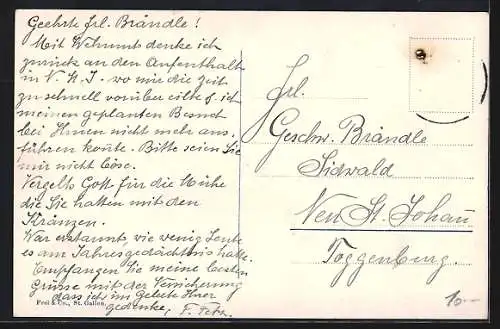 Geehrte Frl. Brändle!
Mit Wehmut denke ich
zurück an den Aufenthalt
in N. St. J. wo mir die Zeit
zu schnell vorüber eilte & ich
meinen geplanten Besuch
bei Ihnen nicht mehr aus-
führen konnte. Bitte seien Sie
mir nicht böse.
Vergelts Gott für die Mühe
die Sie hatten mit den
Kränzen.
War erstaunt, wie wenig Leute
es am Jahresgedächtnis hatte.
Empfangen Sie meine besten
Grüsse mit der Versicherung
dass ich im Gebete Ihrer
gedenke,
Frl.
Geschw. Brändle
Sidwald
Neu St. Johann
Toggenburg.
10.—
Frei & Co., St. Gallen.